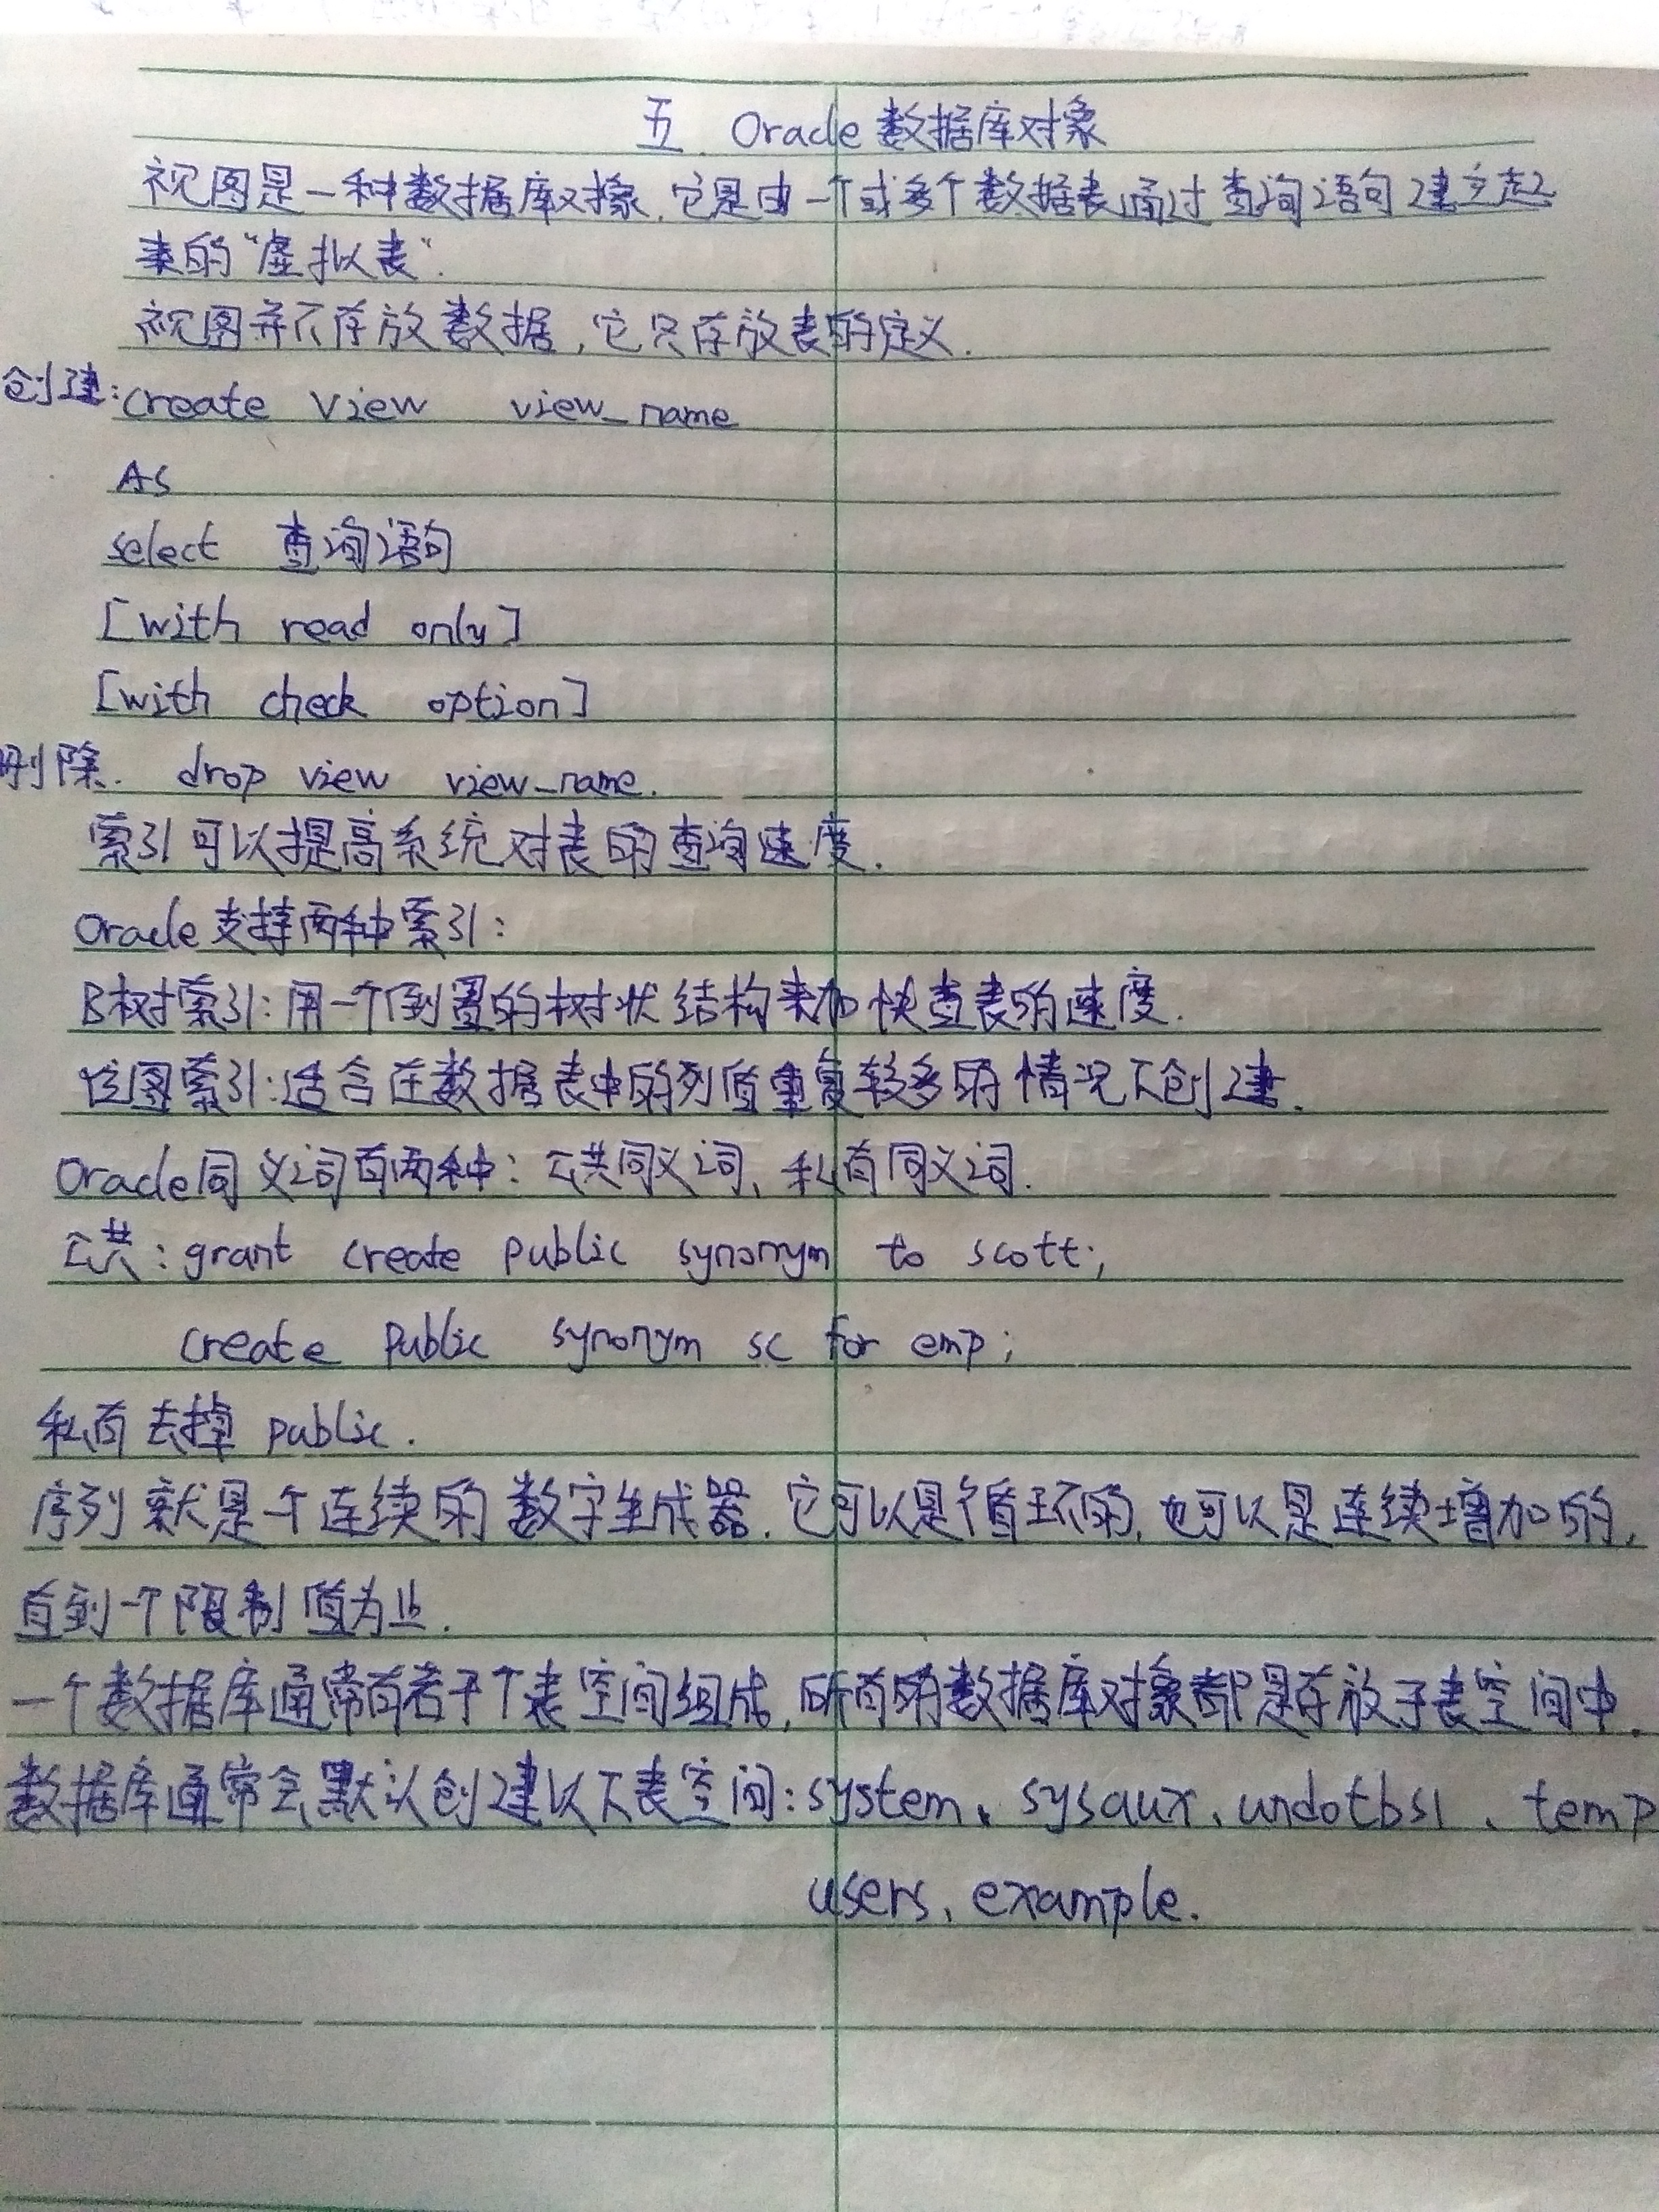 五、Oracle数据库对象
视图是一种数据库对象,它是由一个或多个数据表通过查询语句建立起
来的“虚拟表”.
视图并不存放数据,它只存放表的定义.
创建:create view view_name
As
select 查询语句
[with read only]
[with check option]
删除. drop view view_name.
索引可以提高系统对表的查询速度.
Oracle支持两种索引:
B树索引:用一个倒置的树状结构来加快查表的速度.
位图索引:适合在数据表中的列值重复较多的情况下创建.
Oracle同义词有两种:公共同义词、私有同义词.
公共:grant create public synonym to scott;
create public synonym sc for emp;
私有去掉 public.
序列就是一个连续的数字生成器.它可以是循环的,也可以是连续增加的,
直到一个限制值为止.
一个数据库通常有若干个表空间组成,所有的数据库对象都是存放于表空间中.
数据库通常会默认创建以下表空间:system、sysaux、undotbs1、temp
users、example.